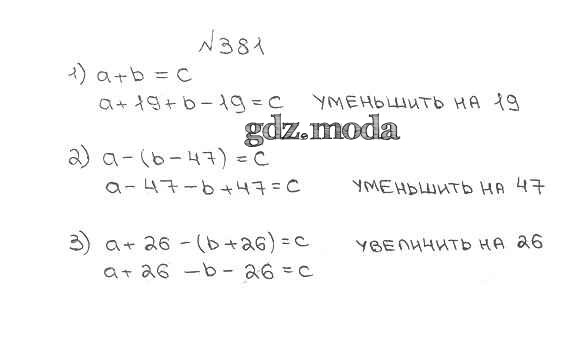 №381
1) a+b=c
a+19+b-19=c уменьшить на 19
gdz.moda
2) a-(b-47)=c
a-47-b+47=c уменьшить на 47
3) a+26-(b+26)=c увеличить на 26
a+26-b-26=c